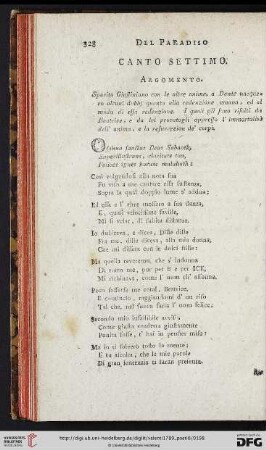 328 DEL PARADISO
CANTO SETTIMO.
ARGOMENTO.
Sparito Giustiniano con le altre anime, a Dante nacquero alcuni dubbj quanto alla redenzione umana, ed al
modo di essa redenzione. I quali gli sono risoluti da
Beatrice, e da lei provatogli appresso l'immortalità
dell' anima, e la resurrezion de' corpi.
Osanna sanctus Deus Sabaoth,
Superillustrans claritate tua,
Felices ignes horum malahoth:
Così volgendosi alla nota sua
Fu viso a me cantare essa sustanza,
Sopra la qual doppio lume s' addua:
Ed essa e l' altre mossero a sua danza,
E, quasi velocissime faville,
Mi si velar, di subita distanza.
Io dubitava, e dicea, dille dille
Fra me, dille diceva, alla mia donna,
Che mi disseta con le dolci stille:
Ma quella reverenza, che s' indonna
Di tutto me, pur per B e per ICE,
Mi richinava, come l' uom ch' assonna.
Poco sofferse me cotal Beatrice,
E cominciò, raggiandomi d' un riso
Tal che nel fuoco faria l' uom felice:
Secondo mio infallibile avviso,
Come giusta vendetta giustamente
Punita fosse, t' hai in pensier miso:
Ma io ti solverò tosto la mente:
E tu ascolta, che le mie parole
Di gran sentenzia ti faran presente.
http://digi.ub.uni-heidelberg.de/diglit/
© Universitätsbibliothek Heidelberg
gefördert durch die
DFG